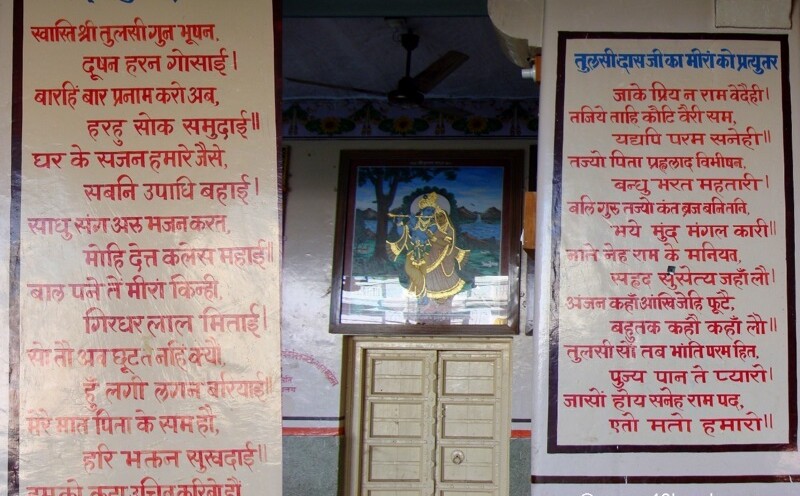 स्वास्ति श्री तुलसी गुन भूषन,
दूषन हरन गोसाईं।
बारहिं बार प्रनाम करो अब,
हरहु सोक समुदाई॥
घर के सजन हमारे जैसे,
सबनि उपाधि बढ़ाई।
साधु संग अरु भजन करत,
मोहि देत कलेस महाई॥
बाल पने तें मीरां किन्ही,
गिरधर लाल मिताई।
सो तौ अब छूटत नहिं क्यों,
हुँ लगी लगन बरियाई॥
मेरे मात पिता के सम हौ,
हरि भक्तन सुखदाई॥
हमको कहा उचित करिवो हौं
तुलसीदास जी का मीरां को प्रत्युतर
जाके प्रिय न राम वेदैही।
तजिये ताहि कौटि वैरी सम,
यद्यपि परम सनेही॥
तज्यो पिता प्रह्लाद विभीषन,
बन्धु भरत महतारी।
बलि गुरु तज्यो कंत ब्रज बनितनि,
भये मुंद मंगल कारी॥
नाते नेह राम के मनियत,
सहृद सुसेत्य जहाँ लौ।
अंजन कहाँ आंखि जेहि फूटै,
बहुतक कहौ कहाँ लौ॥
तुलसी सो तब भांति परम हित,
पुज्य पान ते प्यारो।
जासों होय सनेह राम पद,
एतो मतो हमारो॥